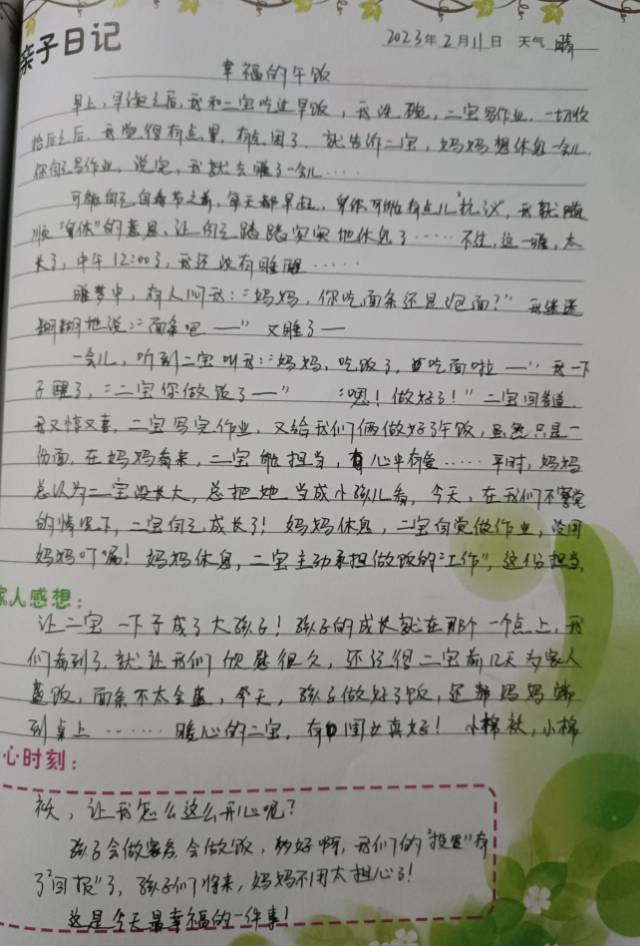 亲子日记
2023年2月11日 天气 晴
幸福的午饭
早上,早读之后,我和二宝吃过早饭,我洗碗,二宝写作业,一切收
拾后之后,我觉得有点累,有点困了,就告诉二宝,妈妈想休息一会儿,
你自己写作业,说完,我就去睡了一会儿……
可能自己自春节之前,每天都早起,身体可能有点儿"抗议",我就随
顺"身体"的意思,让自己踏踏实实地休息了……不过,这一睡,太
长了,中午12:00了,我还没有睡醒……
睡梦中,有人问我:"妈妈,你吃面条还是泡面?"我迷迷
糊糊地说:"面条吧——"又睡了—
一会儿,听到二宝叫我:"妈妈,吃饭了,吃面啦——"我一下
子醒了,"二宝你做饭了——" "嗯!做好了!"二宝回答道,
我又惊又喜,二宝写完作业,又给我们俩做好了午饭,虽然只是一
份面,在妈妈看来,二宝能担当,有心中有爱……平时,妈妈
总认为二宝没长大,总把她当成小孩儿看,今天,在我们不察觉
的情况下,二宝自己成长了!妈妈休息,二宝自觉做作业,没用
妈妈叮嘱!妈妈休息,二宝主动承担做饭的"工作",这份担当,
家人感想:
让二宝一下子成了大孩子!孩子的成长就在那个一个点上,我
们看到了,就让我们欣慰很久,还记得二宝前几天为家人
盛饭,面条不太全盛,今天,孩子做好了饭,还帮妈妈端
到桌上……暖心的二宝,有闺女真好!小棉袄,小棉
心时刻:
袄,让我怎么这么开心呢?
孩子会做家务,会做饭,多好啊,我们的"投置"有
了"回报"了,孩子们将来,妈妈不用太担心了!
这是今天最幸福的一件事!